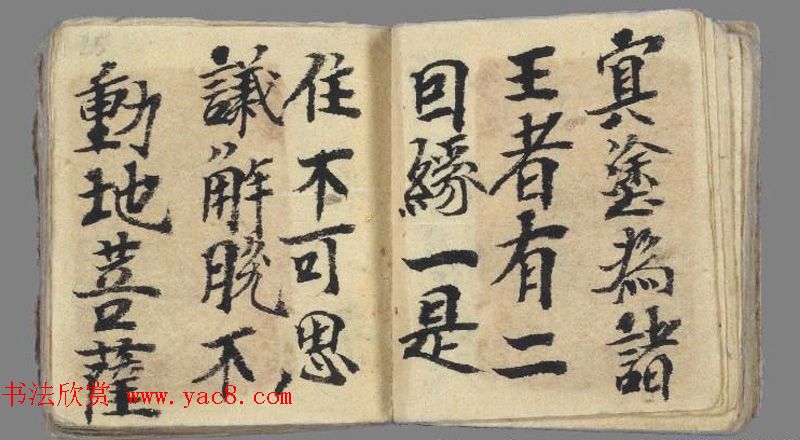 冥塗為諸
王者有二
因緣一是
住不可思
議解脫不
動地菩薩
书法欣赏 www.yac8.com